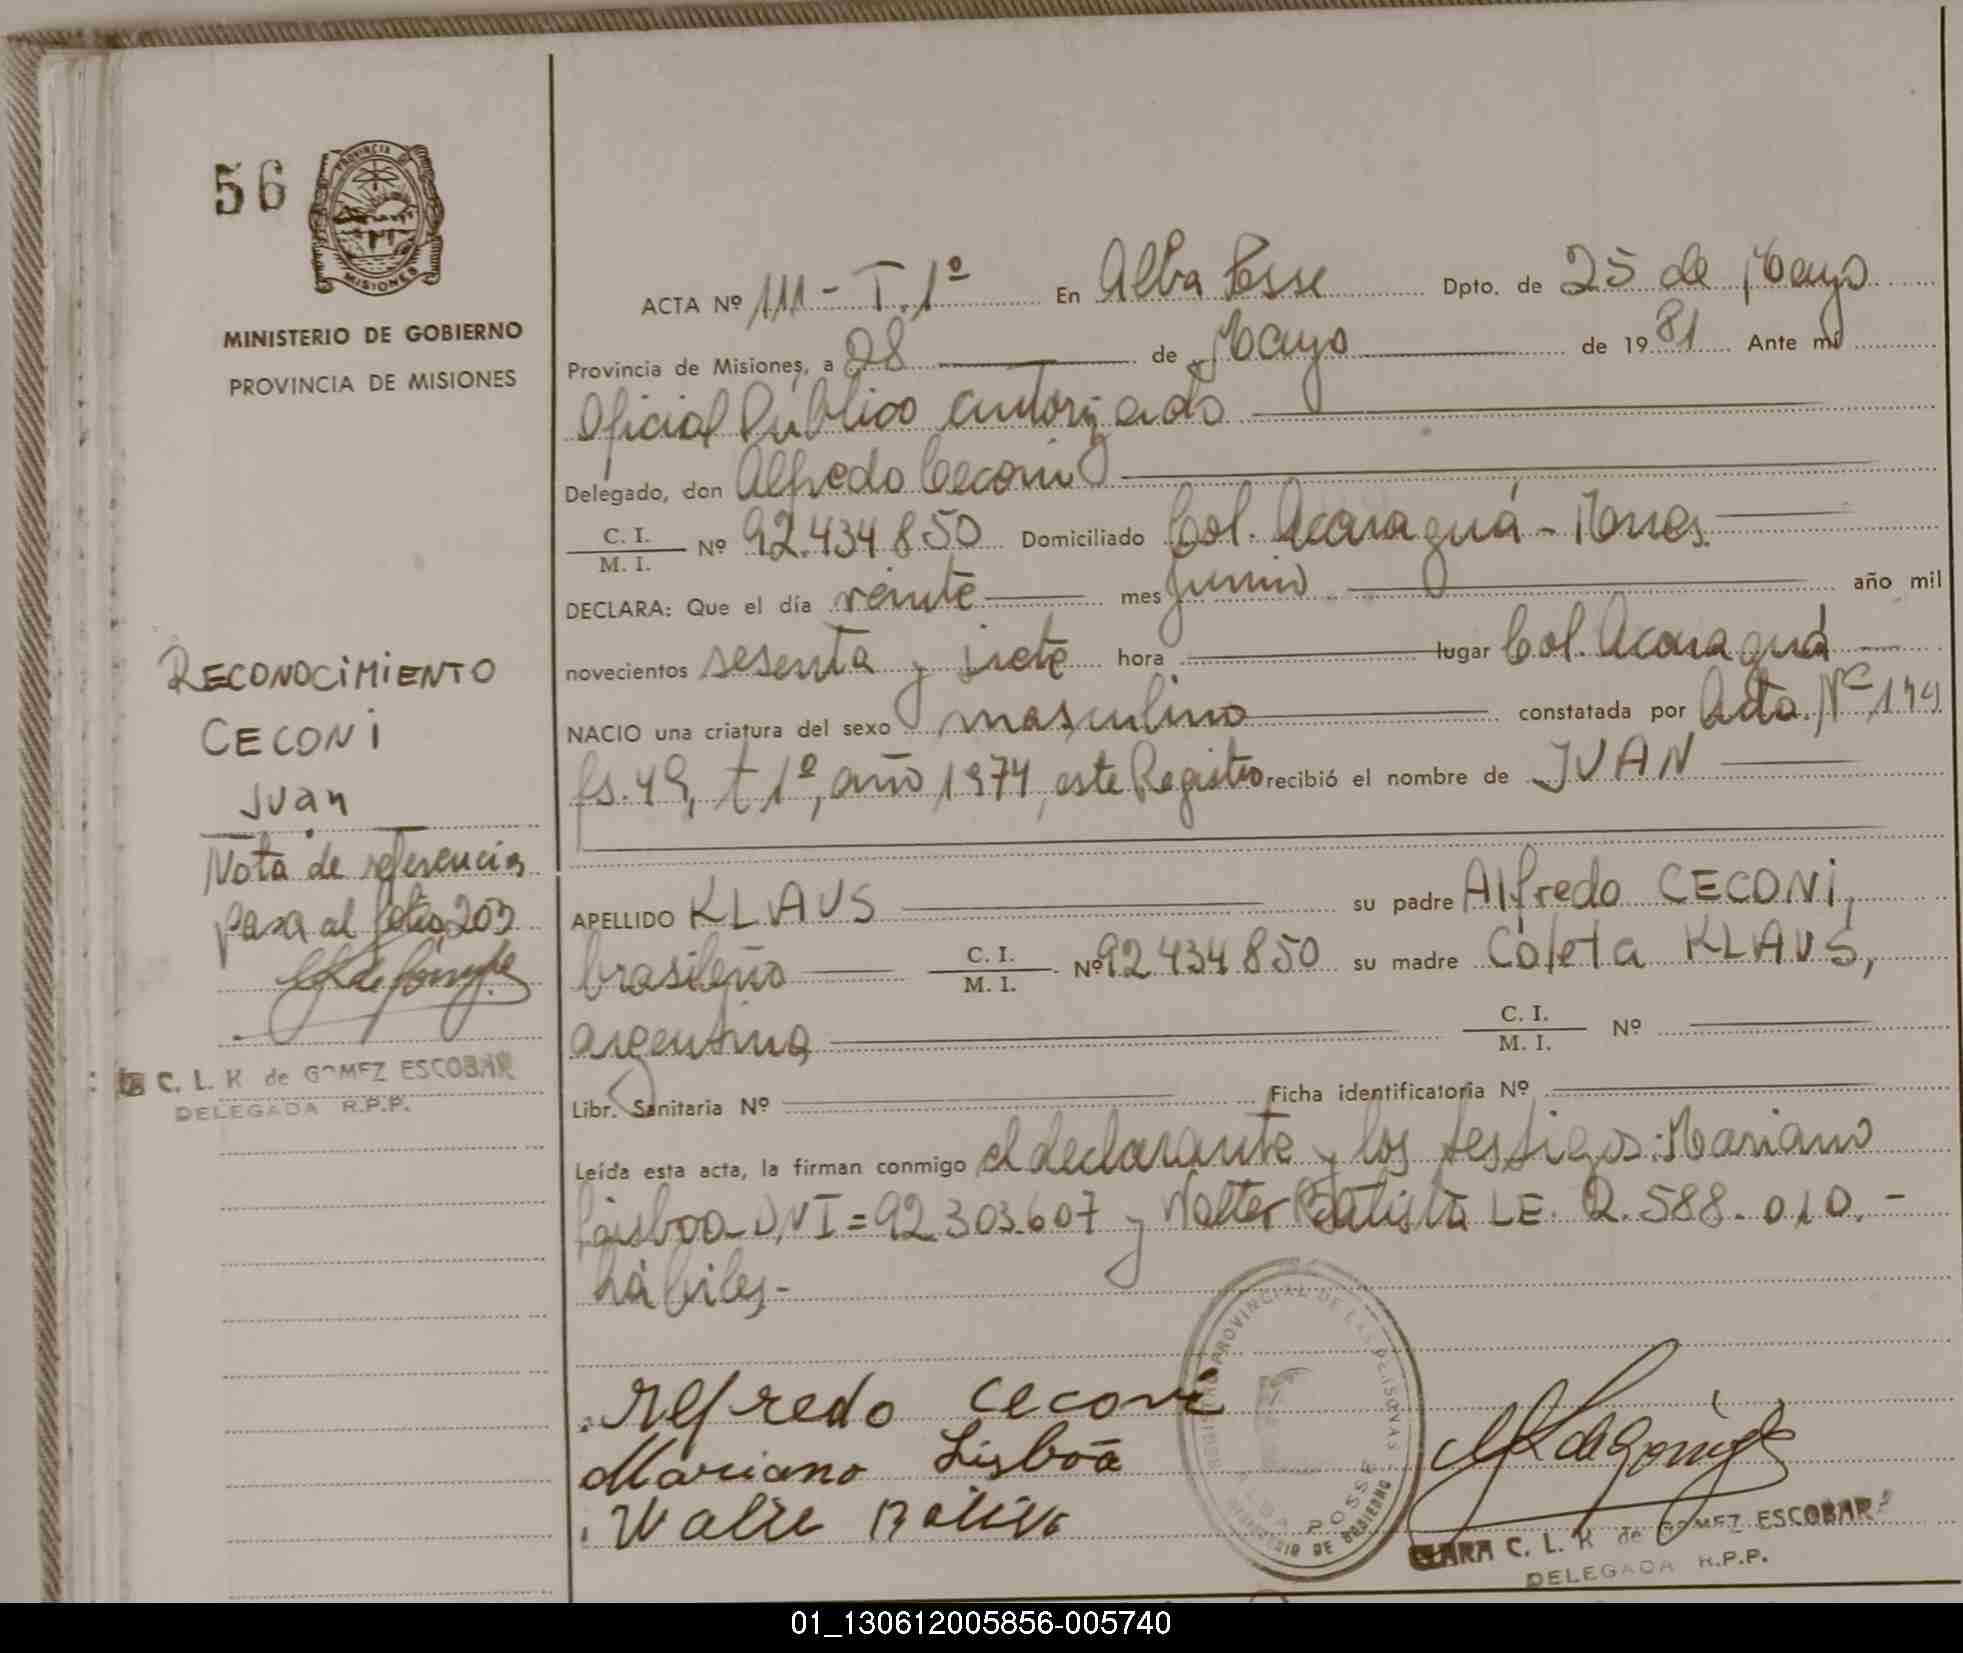 56
PROVINCIA DE
MISIONES
MINISTERIO DE GOBIERNO
PROVINCIA DE MISIONES
RECONOCIMIENTO
CECONI
Juan
Nota de referencia
pasa al folio 203
C. L. K de GOMEZ ESCOBAR
DELEGADA R.P.P.
ACTA Nº 111 - T. 1º En Alba Posse Dpto. de 25 de Mayo
Provincia de Misiones, a 28 de Mayo de 1981 Ante mí
Oficial Público autorizado
Delegado, don Alfredo Ceconi
C. I. / M. I. Nº 92.434.850 Domiciliado Col. Acaraguá -
DECLARA: Que el día veinte mes junio año mil
novecientos sesenta y siete hora lugar Col. Acaraguá
NACIO una criatura del sexo masculino constatada por Acta Nº
fs. 49, t 1º, año 1974, este Registro recibió el nombre de JUAN
APELLIDO KLAUS su padre Alfredo CECONI,
brasileño C. I. / M. I. Nº 92.434.850 su madre Coleta KLAUS,
argentina C. I. / M. I. Nº
Libr. Sanitaria Nº Ficha identificatoria Nº
Leída esta acta, la firman conmigo el declarante y los testigos: Mariano
Lisboa DNI = 92.303.607 y Walter Batista LE. 2.588.010.-
hábiles.-
Alfredo Ceconi
Mariano Lisboa
REGISTRO PROVINCIAL DE LAS PERSONAS
ALBA POSSE
MINISTERIO DE GOBIERNO
CLARA C. L. K de GOMEZ ESCOBAR
DELEGADA R.P.P.
01_130612005856-005740